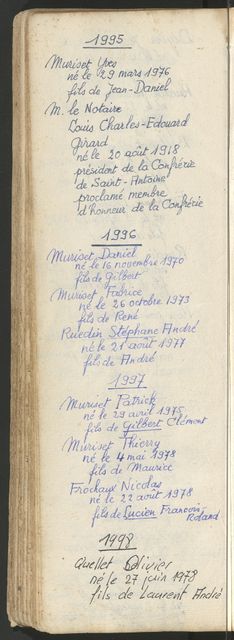 1995
Muriset Yves
né le 29 mars 1976
fils de Jean-Daniel
M. le Notaire
Louis Charles-Edouard
Girard
né le 20 août 1918
président de la Confrérie
de Saint-Antoine
proclamé membre
d'honneur de la Confrérie
1996
Muriset Daniel
né le 16 novembre 1970
fils de Gilbert
Muriset Fabrice
né le 26 octobre 1973
fils de René
Ruedin Stéphane André
né le 21 août 1977
fils de André
1997
Muriset Patrick
né le 29 avril 1975
fils de Gilbert Clément
Muriset Thierry
né le 4 mai 1978
fils de Maurice
Frochaux Nicolas
né le 22 août 1978
fils de Lucien François
Roland
1998
Quellet Olivier
né le 27 juin 1978
fils de Laurent André